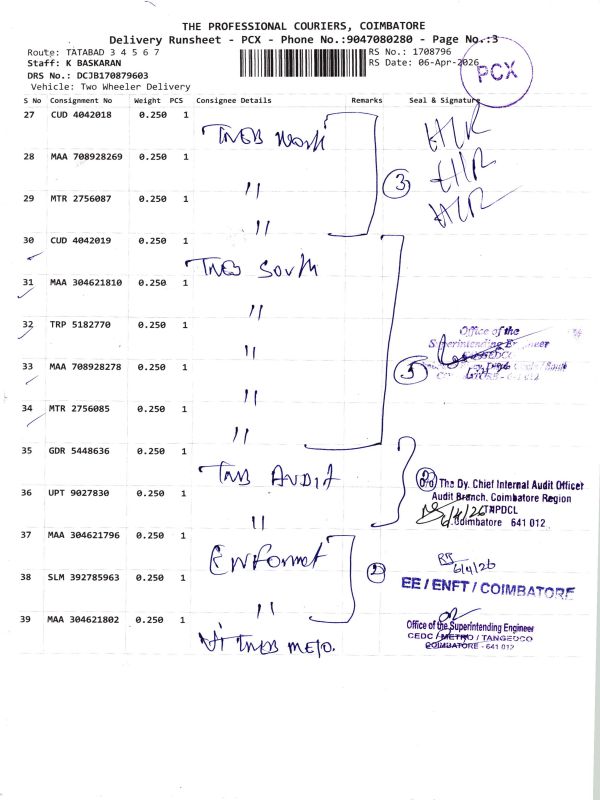 THE PROFESSIONAL COURIERS, COIMBATORE
Delivery Runsheet - PCX - Phone No.:9047080280 - Page No.:3
Route: TATABAD 3 4 5 6 7
RS No.: 1708796
Staff: K BASKARAN
RS Date: 06-Apr-2026
PCX
DRS No.: DCJB170879603
Vehicle: Two Wheeler Delivery
S No Consignment No Weight PCS Consignee Details Remarks Seal & Signature
27 CUD 4042018 0.250 1
TNEB
28 MAA 708928269 0.250 1
3
"
29 MTR 2756087 0.250 1
"
30 CUD 4042019 0.250 1
TNEB South
31 MAA 304621810 0.250 1
"
32 TRP 5182770 0.250 1
Office of the
Superintending Engineer
"
33 MAA 708928278 0.250 1
5
"
34 MTR 2756085 0.250 1
"
35 GDR 5448636 0.250 1
TNEB AUDIT
2
The Dy. Chief Internal Audit Officer
36 UPT 9027830 0.250 1
Audit Branch. Coimbatore Region
TNPDCL
6/4/26
"
Coimbatore 641 012
37 MAA 304621796 0.250 1
Enforment
2
6/4/26
38 SLM 392785963 0.250 1
EE / ENFT / COIMBATORE
"
39 MAA 304621802 0.250 1
Office of the Superintending Engineer
TNEB METO.
CEDC / METRO / TANGEDCO
COIMBATORE - 641 012